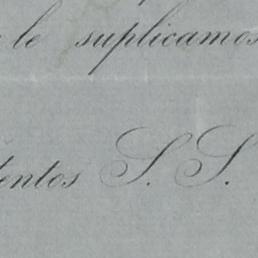 le suplicamos
tentos S. S.